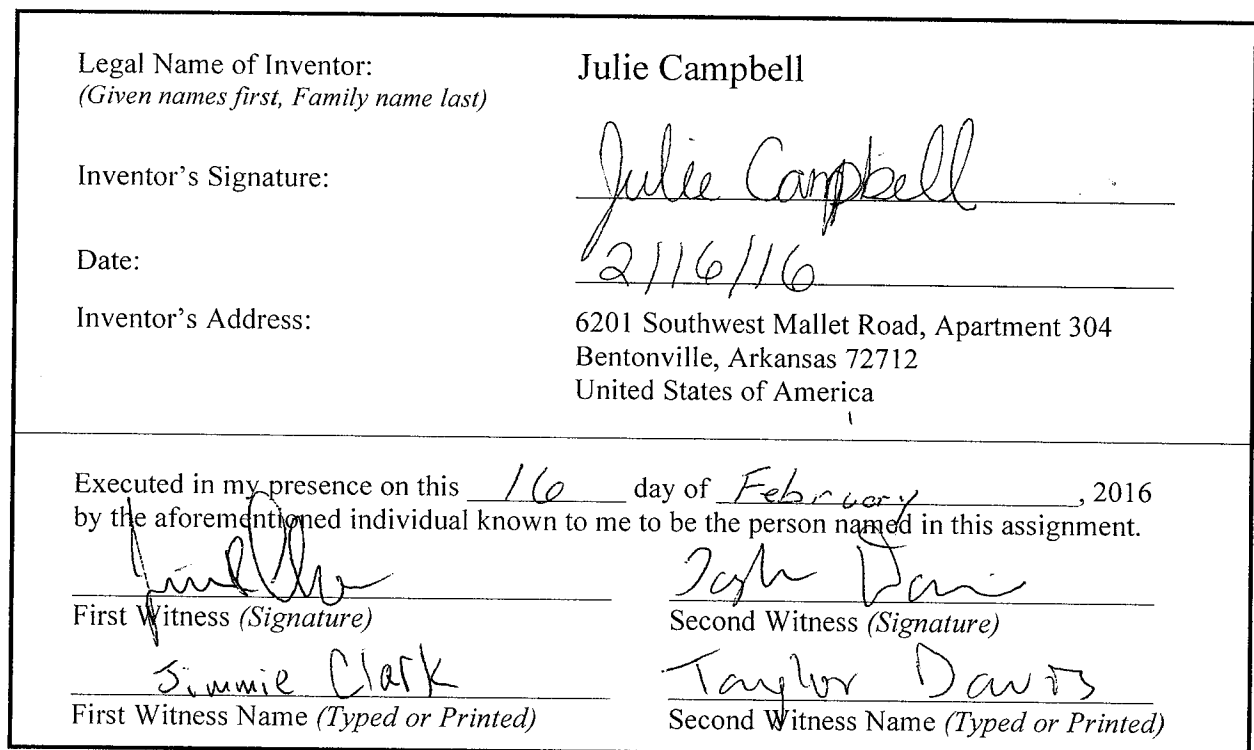 Legal Name of Inventor: Julie Campbell
(Given names first, Family name last)
Inventor's Signature: Julie Campbell
Date: 2/16/16
Inventor's Address: 6201 Southwest Mallet Road, Apartment 304
Bentonville, Arkansas 72712
United States of America
Executed in my presence on this 16 day of February, 2016
by the aforementioned individual known to me to be the person named in this assignment.
First Witness (Signature) Second Witness (Signature)
Jimmie Clark Taylor Davis
First Witness Name (Typed or Printed) Second Witness Name (Typed or Printed)